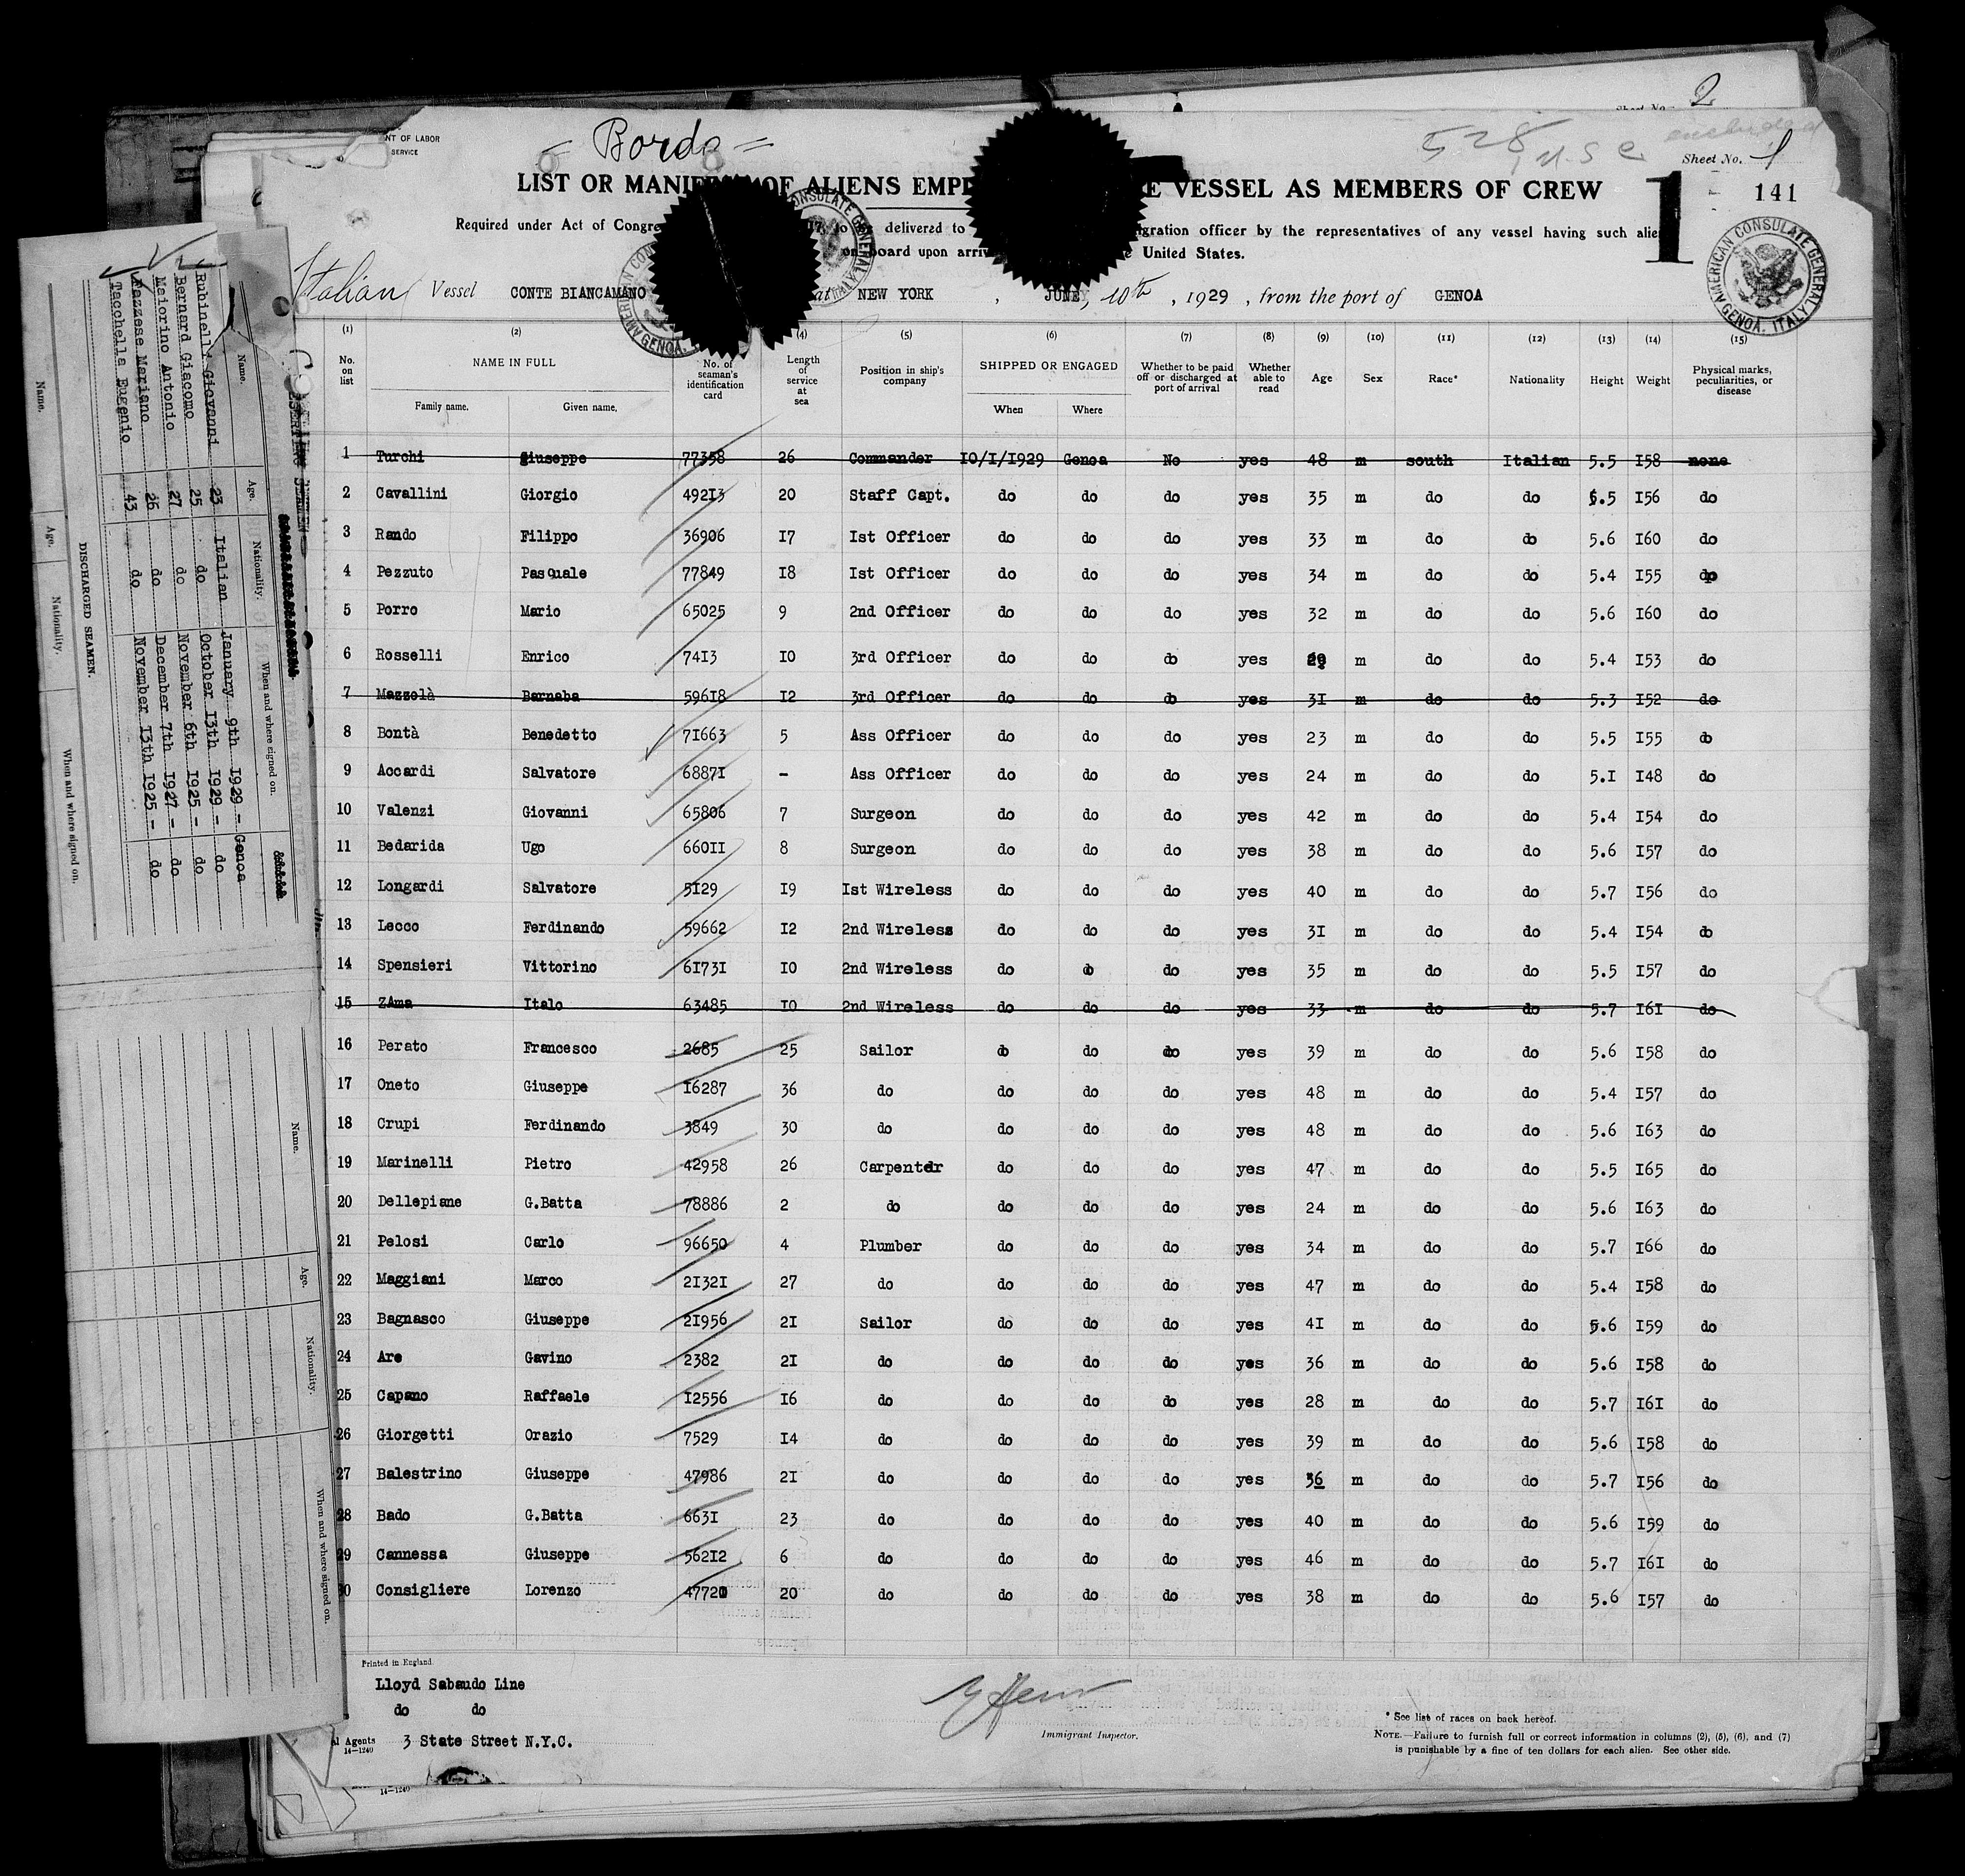 2
Sheet No.
NT OF LABOR
SERVICE
= Bordo =
528 U.S.C.
Sheet No. 1
LIST OR MANIF OF ALIENS EMP E VESSEL AS MEMBERS OF CREW
1
141
Required under Act of Congre 17, to be delivered to igration officer by the representatives of any vessel having such alie
on board upon arriv e United States.
Italian Vessel CONTE BIANCAMANO at NEW YORK , JUNE, 10th , 1929 , from the port of GENOA
AMERICAN CONSULATE GENERAL
GENOA, ITALY
(1) (2) (4) (5) (6) (7) (8) (9) (10) (11) (12) (13) (14) (15)
No. on list
NAME IN FULL
Family name. Given name.
No. of seaman's identification card
Length of service at sea
Position in ship's company
SHIPPED OR ENGAGED
When Where
Whether to be paid off or discharged at port of arrival
Whether able to read
Age
Sex
Race*
Nationality
Height
Weight
Physical marks, peculiarities, or disease
1 Turchi Giuseppe 77358 26 Commander IO/I/I929 Genoa No yes 48 m south Italian 5.5 I58 none
2 Cavallini Giorgio 492I3 20 Staff Capt. do do do yes 35 m do do 5.5 I56 do
3 Rando Filippo 36906 I7 Ist Officer do do do yes 33 m do do 5.6 I60 do
4 Pezzuto Pasquale 77849 I8 Ist Officer do do do yes 34 m do do 5.4 I55 do
5 Porro Mario 65025 9 2nd Officer do do do yes 32 m do do 5.6 I60 do
6 Rosselli Enrico 74I3 IO 3rd Officer do do do yes 29 m do do 5.4 I53 do
7 Mazzolà Barnaba 596I8 I2 3rd Officer do do do yes 3I m do do 5.3 I52 do
8 Bontà Benedetto 7I663 5 Ass Officer do do do yes 23 m do do 5.5 I55 do
9 Accardi Salvatore 6887I - Ass Officer do do do yes 24 m do do 5.I I48 do
10 Valenzi Giovanni 65806 7 Surgeon do do do yes 42 m do do 5.4 I54 do
11 Bedarida Ugo 660II 8 Surgeon do do do yes 38 m do do 5.6 I57 do
12 Longardi Salvatore 5I29 I9 Ist Wireless do do do yes 40 m do do 5.7 I56 do
13 Lecco Ferdinando 59662 I2 2nd Wireless do do do yes 3I m do do 5.4 I54 do
14 Spensieri Vittorino 6I73I IO 2nd Wireless do do do yes 35 m do do 5.5 I57 do
15 ZAma Italo 63485 IO 2nd Wireless do do do yes 33 m do do 5.7 I6I do
16 Perato Francesco 2685 25 Sailor do do do yes 39 m do do 5.6 I58 do
17 Oneto Giuseppe I6287 36 do do do do yes 48 m do do 5.4 I57 do
18 Crupi Ferdinando 3849 30 do do do do yes 48 m do do 5.6 I63 do
19 Marinelli Pietro 42958 26 Carpenter do do do yes 47 m do do 5.5 I65 do
20 Dellepiane G.Batta 78886 2 do do do do yes 24 m do do 5.6 I63 do
21 Pelosi Carlo 96650 4 Plumber do do do yes 34 m do do 5.7 I66 do
22 Maggiani Marco 2I32I 27 do do do do yes 47 m do do 5.4 I58 do
23 Bagnasco Giuseppe 2I956 2I Sailor do do do yes 4I m do do 5.6 I59 do
24 Are Gavino 2382 2I do do do do yes 36 m do do 5.6 I58 do
25 Capano Raffaele I2556 I6 do do do do yes 28 m do do 5.7 I6I do
26 Giorgetti Orazio 7529 I4 do do do do yes 39 m do do 5.6 I58 do
27 Balestrino Giuseppe 47986 2I do do do do yes 36 m do do 5.7 I56 do
28 Bado G.Batta 663I 23 do do do do yes 40 m do do 5.6 I59 do
29 Cannessa Giuseppe 562I2 6 do do do do yes 46 m do do 5.7 I6I do
30 Consigliere Lorenzo 47720 20 do do do do yes 38 m do do 5.6 I57 do
Printed in England.
Lloyd Sabaudo Line
do do
al Agents 3 State Street N.Y.C.
14—1240
Immigrant Inspector.
* See list of races on back hereof.
NOTE.—Failure to furnish full or correct information in columns (2), (5), (6), and (7)
is punishable by a fine of ten dollars for each alien. See other side.
14—1240
Name. Age. Nationality. When and where signed on.
Rubinelli Giovanni 23 Italian January 9th I929 - Genoa
Bernard Giacomo 25 do October I3th I929 - do
Maiorino Antonio 27 do November 6th I925 - do
Pazzese Mariano 26 do December 7th I927 - do
Tacchella Eugenio 43 do November I3th I925 - do
DISCHARGED SEAMEN.
Name. Age. Nationality. When and where signed on.
Name. Age. Nationality. When and where signed on.